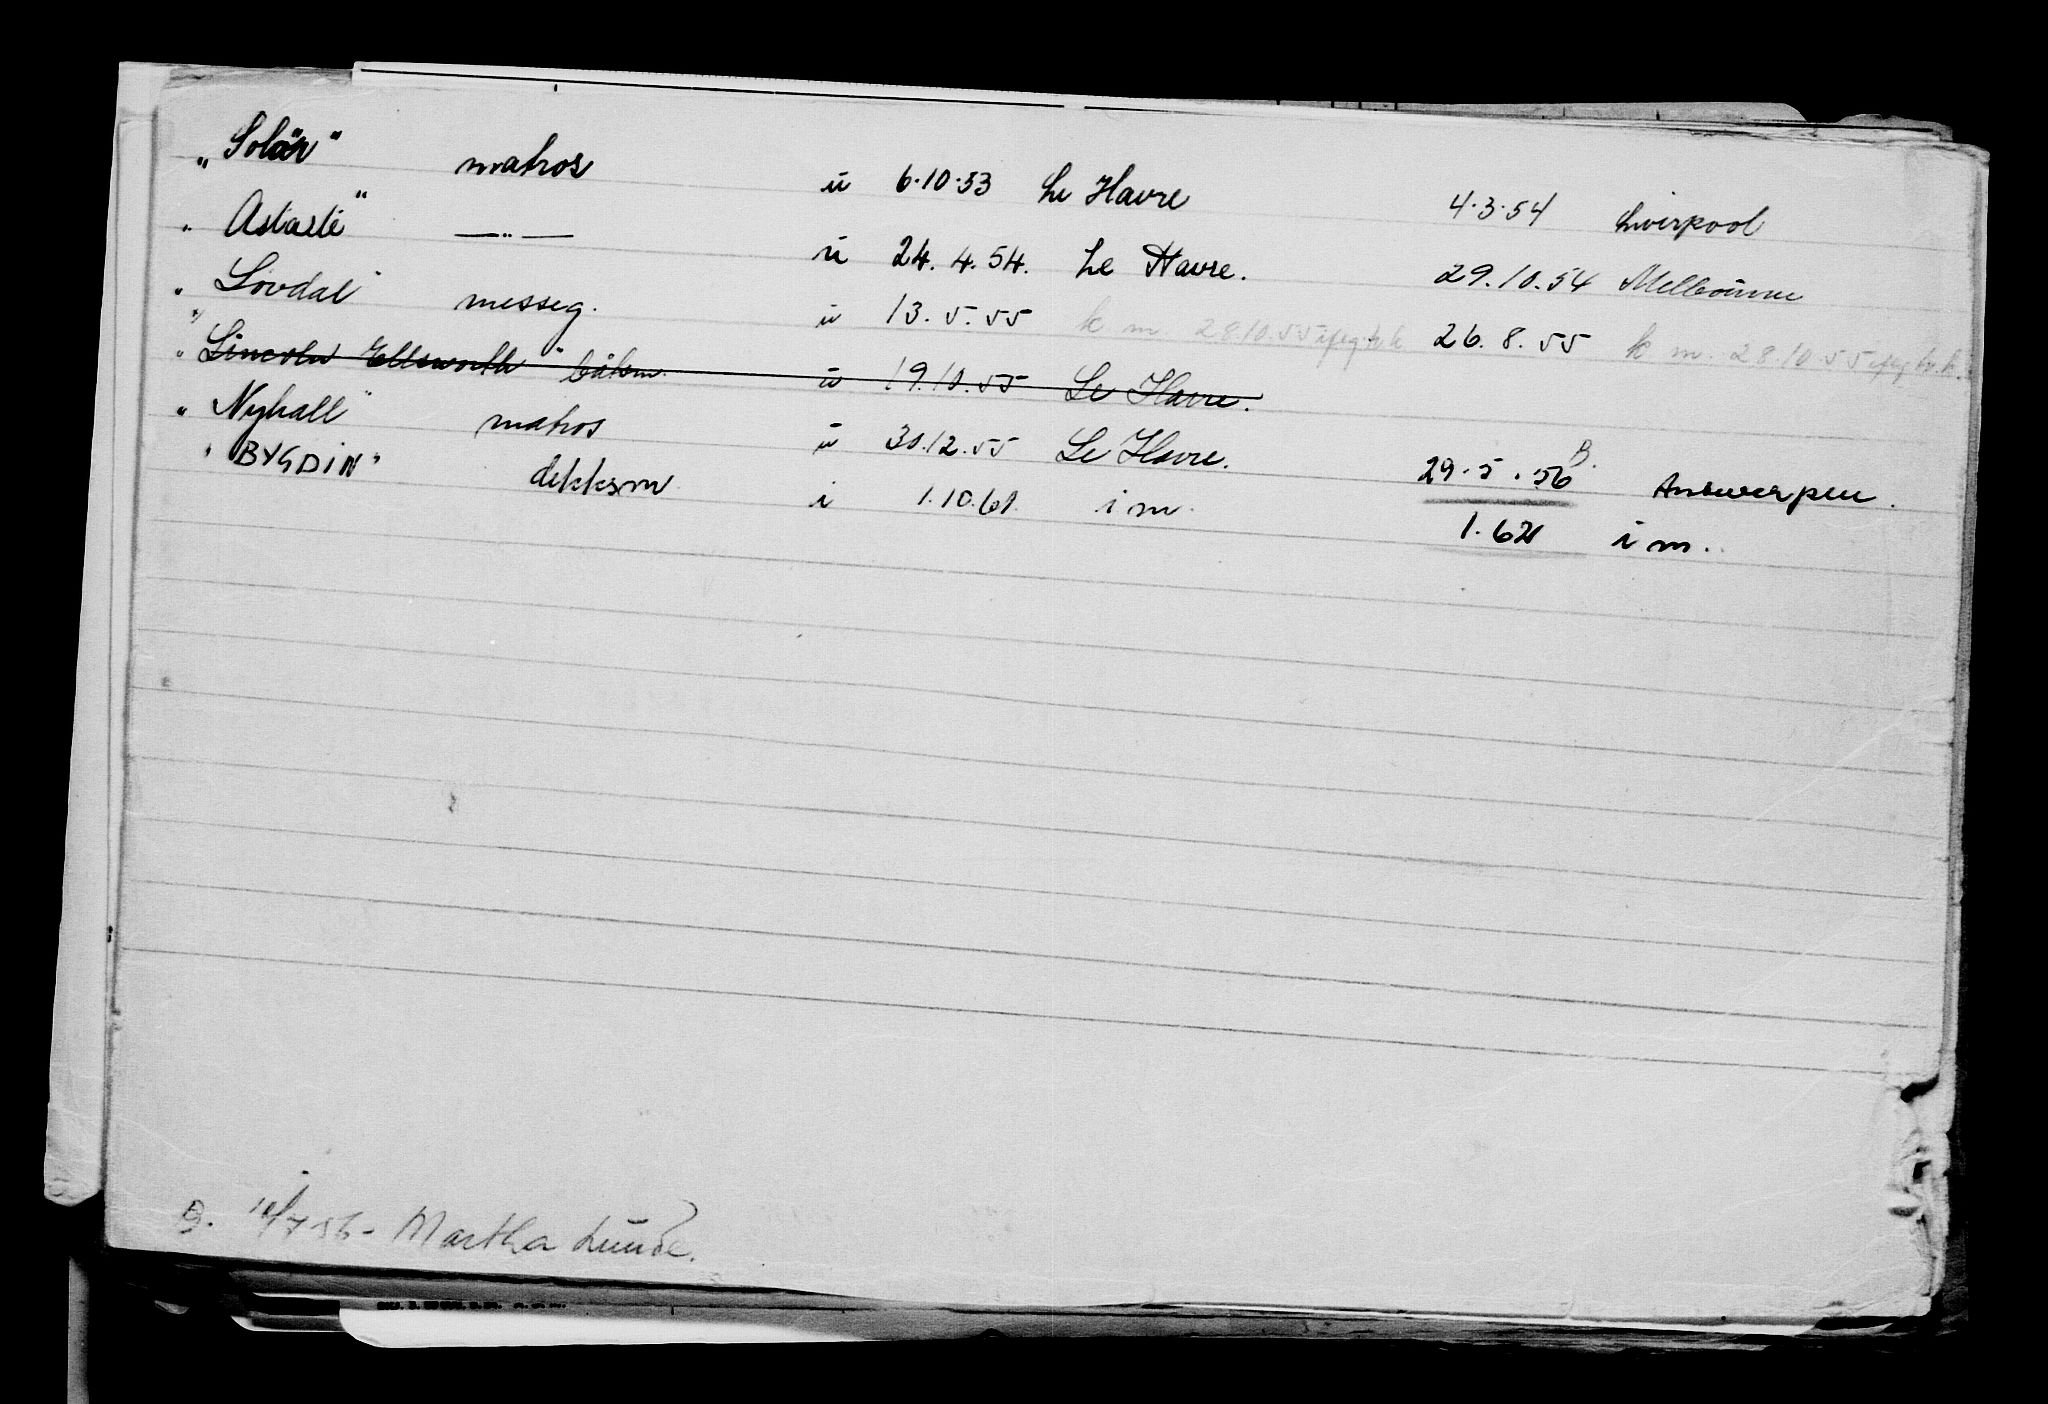 „Solör" matros u 6.10.53 Le Havre 4.3.54 Liverpool
„ Astarte" —"— u 24.4.54. Le Havre. 29.10.54 Melbourne
„ Lovdal" messeg. u 13.5.55 k m. 28.10.55 26.8.55 k m. 28.10.55
„Lincoln Ellsworth" båtsm. u 19.10.55 Le Havre.
„ Nyhall" matros u 30.12.55 Le Havre. 29.5.56 B. Antwerpen.
"BYGDIN" dekksm i 1.10.61. i m. 1.62 i m.
B. 10/7 56 - Martha Lunde.